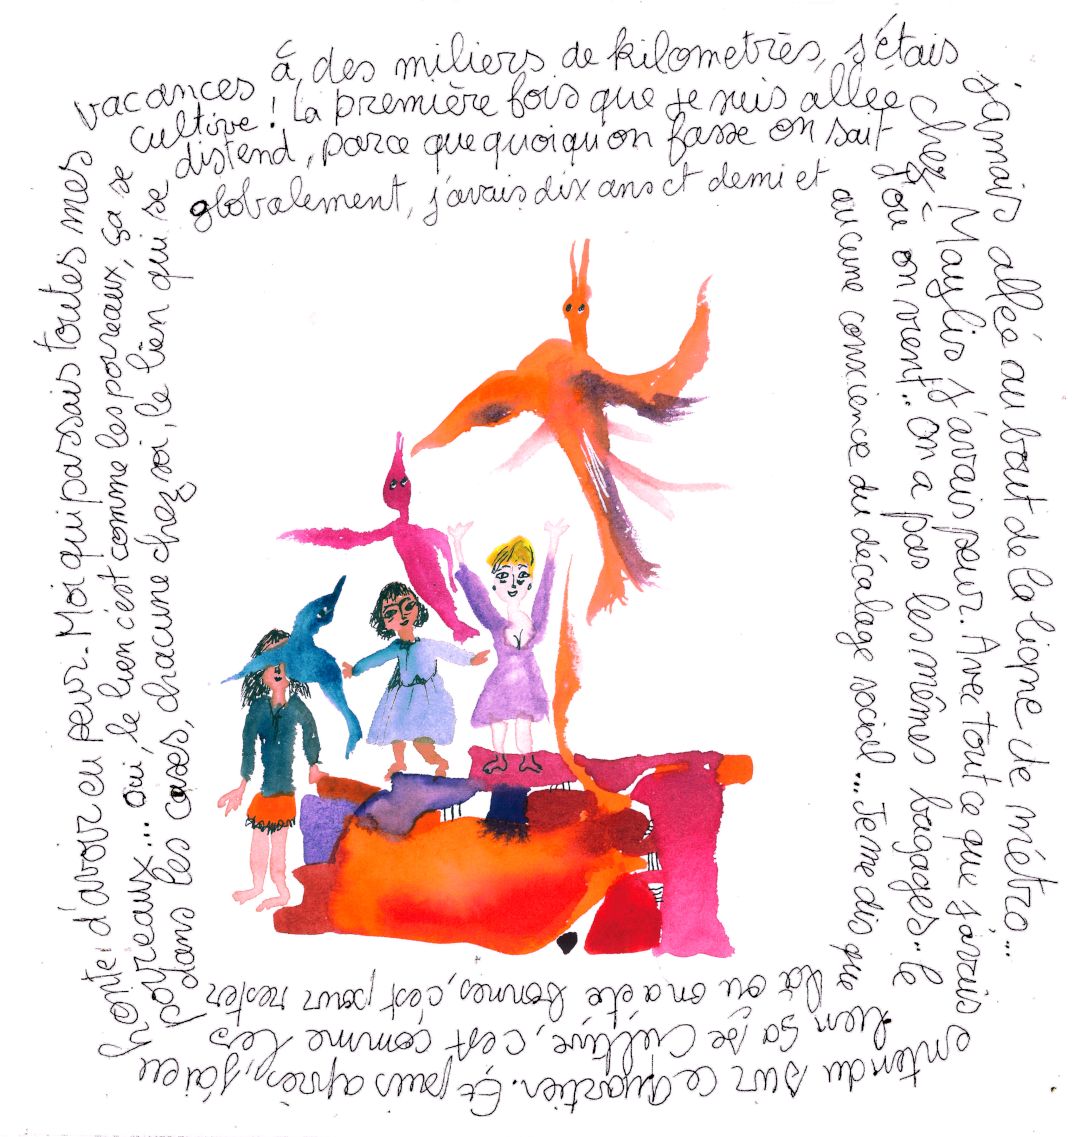 globalement, j'avais dix ans et demi et
aucune conscience du décalage social... Je me dis que
là ou on a été bonnes, c'est pour rester
dans les cases, chacune chez soi, le lien qui se
distend, parce que quoiqu'on fasse on sait
d'où on vient.. On a pas les mêmes bagages.. le
lien sa se cultive, c'est comme les
poireaux... oui, le lien c'est comme les poireaux, ça se
cultive ! La première fois que je suis allée
chez Maylis j'avais peur. Avec tout ce que j'avais
entendu sur ce quartier. Et puis après, j'ai eu
honte d'avoir eu peur. Moi qui passais toutes mes
vacances à des miliers de kilometres, j'étais
jamais allée au bout de la ligne de métro...